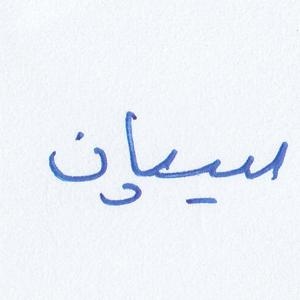 سيبان